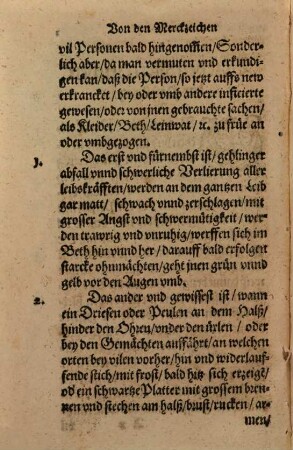 Von den Merckzeichen
vil Personen bald hingenom̃en/Sonder-
lich aber/da man vermuten vnd erkundi-
gen kan/daß die Person/so jetzt auffs new
erkrancket/bey oder vmb andere inficierte
gewesen/oder von jnen gebrauchte sachen/
als Kleider/Beth/Leinwat/ꝛc. zu früe an
oder vmbgezogen.
1. Das erst vnd fürnembst ist/gehlinger
abfall vnnd schwerliche Verlierung aller
leibskräfften/werden an dem gantzen Leib
gar matt/schwach vnnd zerschlagen/mit
grosser Angst vnd schwermütigkeit/wer-
den trawrig vnd vnruhig/werffen sich im
Beth hin vnnd her/darauff bald erfolgen
starcke ohnmächten/geht jnen grün vnnd
gelb vor den Augen vmb.
2. Das ander vnd gewissest ist/wann
ein Driesen oder Peulen an dem Halß/
hinder den Ohren/vnder den üxlen/oder
bey den Gemächten außfährt/an welchen
orten bey vilen vorher/hin vnd widerlauf-
fende stich/mit frost/bald hitz sich erzeigt/
od ein schwartze Platter mit grossem bren-
nen vnd stechen am halß/brust/rucken/ar-
men/